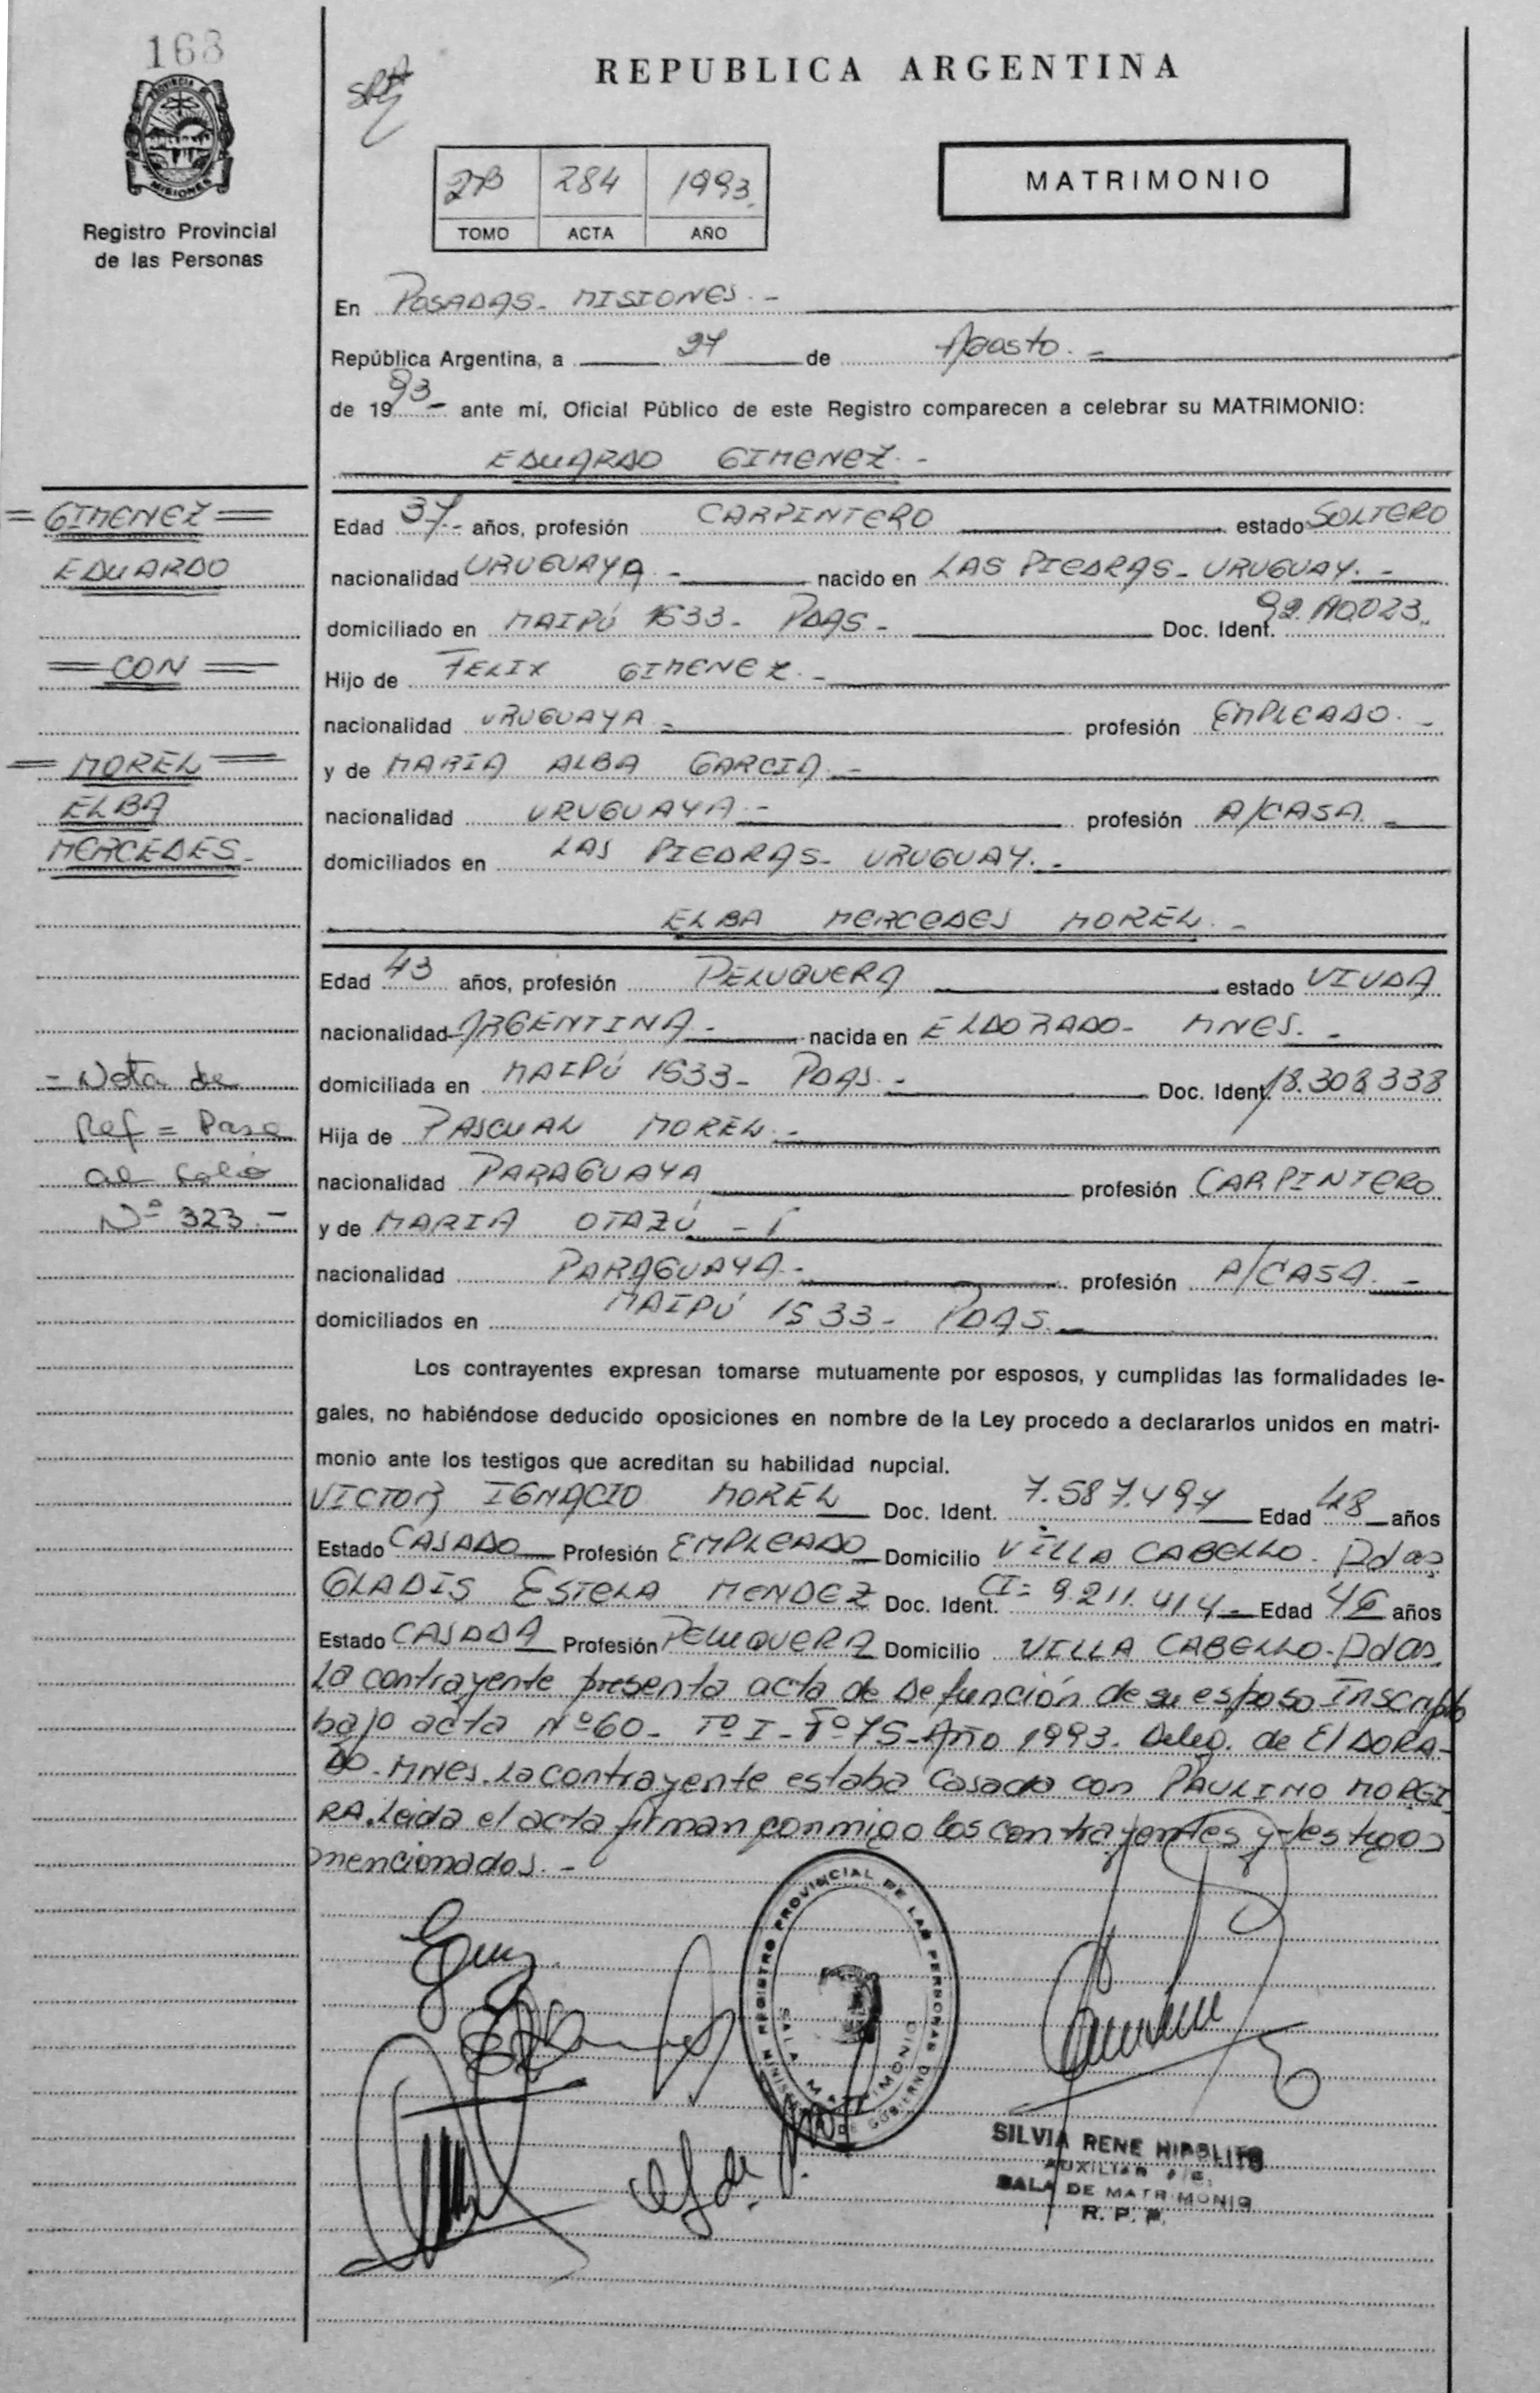 168
REPUBLICA ARGENTINA
PROVINCIA DE MISIONES
Registro Provincial
de las Personas
284 1993.
TOMO ACTA AÑO
MATRIMONIO
En POSADAS- MISIONES.-
República Argentina, a 27 de Agosto.-
de 1993- ante mí, Oficial Público de este Registro comparecen a celebrar su MATRIMONIO:
EDUARDO GIMENEZ.-
=GIMENEZ=
EDUARDO
=CON=
=MOREL=
ELBA
MERCEDES-
Edad 37- años, profesión CARPINTERO estado SOLTERO
nacionalidad URUGUAYA- nacido en LAS PIEDRAS- URUGUAY.-
domiciliado en MAIPÚ 1533- PDAS- Doc. Ident. 92.
Hijo de FELIX GIMENEZ.-
nacionalidad URUGUAYA- profesión EMPLEADO.-
y de MARIA ALBA GARCIA.-
nacionalidad URUGUAYA- profesión A/CASA.-
domiciliados en LAS PIEDRAS- URUGUAY.-
ELBA MERCEDES MOREL.-
Edad 43 años, profesión PELUQUERA estado VIUDA
nacionalidad ARGENTINA- nacida en ELDORADO- MNES.-
domiciliada en MAIPÚ 1533- PDAS.- Doc. Ident. 18.308.338
Hija de PASCUAL MOREL.-
nacionalidad PARAGUAYA profesión CARPINTERO
y de MARIA OTAZÚ -
nacionalidad PARAGUAYA- profesión A/CASA.-
domiciliados en MAIPÚ 1533- PDAS.
- Nota de
Ref = Pase
al folio
Nº 323.-
Los contrayentes expresan tomarse mutuamente por esposos, y cumplidas las formalidades le-
gales, no habiéndose deducido oposiciones en nombre de la Ley procedo a declararlos unidos en matri-
monio ante los testigos que acreditan su habilidad nupcial.
VICTOR IGNACIO MOREL Doc. Ident. 7.587.497 Edad 48 años
Estado CASADO Profesión EMPLEADO Domicilio VILLA CABELLO- Pdas
GLADIS ESTELA MENDEZ Doc. Ident. CI= 9.211.414- Edad 46 años
Estado CASADA Profesión PELUQUERA Domicilio VILLA CABELLO- Pdas.
La contrayente presenta acta de Defunción de su esposo Inscripto
bajo acta Nº60- Tº I- Fº75- Año 1993- Deleg. de El DORA-
DO- MNES. La contrayente estaba Casada con PAULINO MOREI
RA. Leida el acta firman conmigo los contrayentes y testigos
mencionados.-
REGISTRO PROVINCIAL DE LAS PERSONAS
SALA MATRIMONIO
MINISTERIO DE GOBIERNO
SILVIA RENE HIPOLITO
AUXILIAR
SALA DE MATRIMONIO
R. P. P.